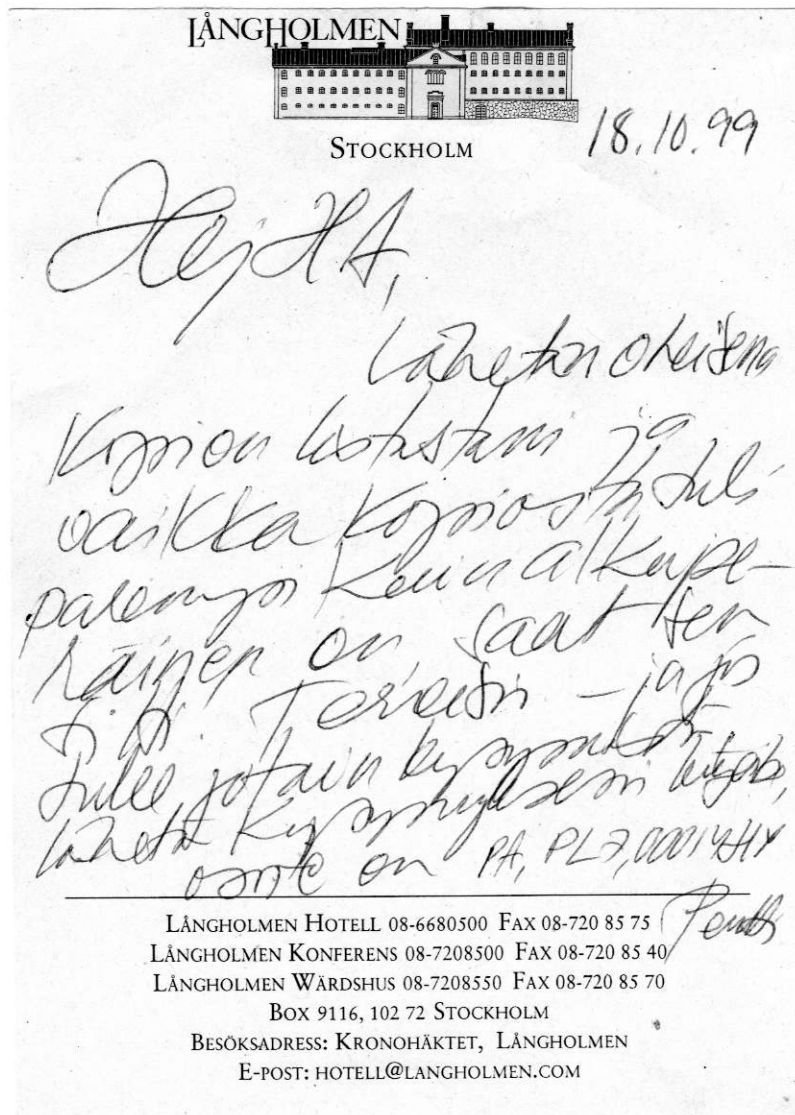 LÅNGHOLMEN
STOCKHOLM
18.10.99
Hej HA,
Lähetän oheisena
Kopion listastani ja
vaikka kopiosta tuli
parempi kuin alkupe-
räinen on, saat sen
Terveisin – ja jos
tulee jotain kysymyksiä
lähetä kysymyksesi
osoite on PA, PL 7, 00014 HY
Pentti
LÅNGHOLMEN HOTELL 08-6680500 FAX 08-720 85 75
LÅNGHOLMEN KONFERENS 08-7208500 FAX 08-720 85 40
LÅNGHOLMEN WÄRDSHUS 08-7208550 FAX 08-720 85 70
BOX 9116, 102 72 STOCKHOLM
BESÖKSADRESS: KRONOHÄKTET, LÅNGHOLMEN
E-POST: HOTELL@LANGHOLMEN.COM